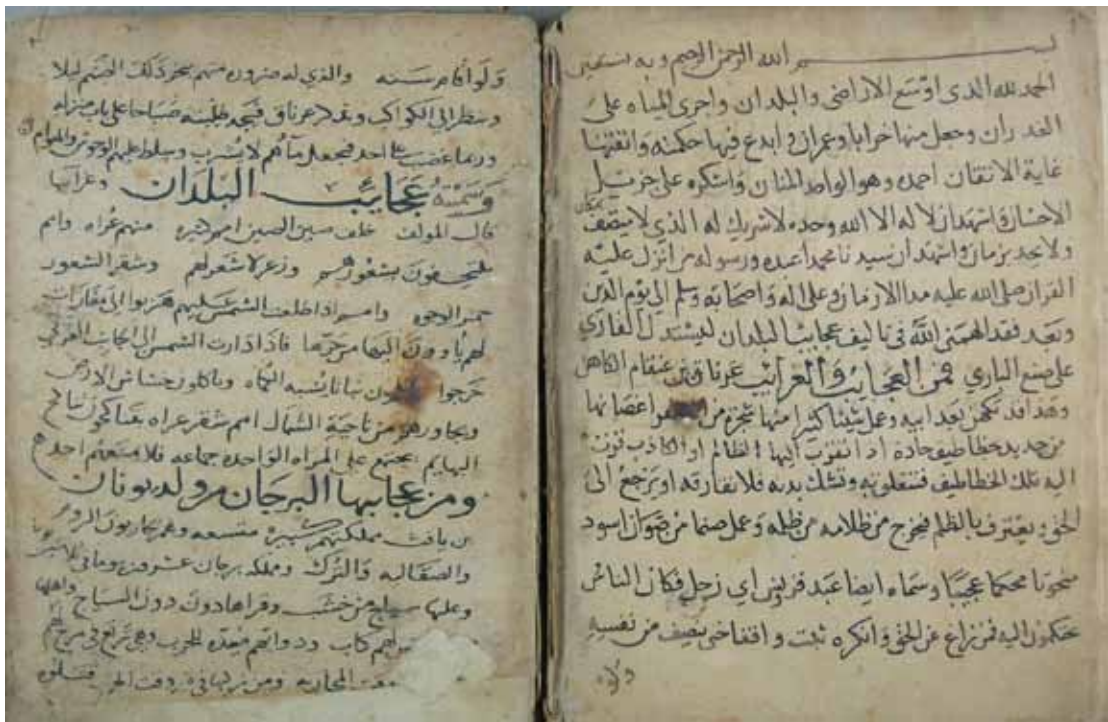 بسم الله الرحمن الرحيم وبه نستعين
الحمد لله الذى اوسع الاراضى والبلدان واجرى المياه على
الغدران وجعل منها خرابا وعمران وابدع فيها حكمته واتقنها
غاية الاتقان احمده وهو الواحد المنان واشكره على جزيل
الاحسان واشهد ان لا اله الا الله وحده لا شريك له الذى لا يتصف بمكان
ولا يحد بزمان واشهد ان سيدنا محمدا عبده ورسوله من انزل عليه
القران صلى الله عليه مدا الازمان وعلى اله واصحابه وسلم الى يوم الدين
وبعد فقد الهمنى الله فى تاليف عجايب البلدان ليستدل القارى
على صنع البارى فمن العجايب والغرايب عرناق بن عنقام الكاهن
وهذا قد تكهن بعد ابيه وعمل شيئا كثيرا منها شجره من اغصانها
من حديد بخطاطيف حادة اذا تقرب اليها الظالم او الكاذب
اليه تلك الخطاطيف فتتعلق به وتشك بدنه فلا تفارقه او يرجع الى
الحق ويعترف بالظلم فيخرج من ظلامه من ظلمه وعمل صنما من صوان اسود
منحوتا محكما عجيبا وسماه ايضا عبد اي زحل فكان الناس
يتحكمون اليه فمن زاغ عن الحق وانكره ثبت من نفسه
ولو
ولو اقام سنه والذي له ضروره منهم يبخر ذلك الصنم ليلا
وينظر الى الكواكب عرناق فيجد طلبته صباحا على باب منزله
وربما غضب على احد فيجعل ماهم لا يشرب وسلط عليهم الوحوش والهوام
وسميته عجايب البلدان وغرايبها
قال المولف خلف صين الصين امم كثيره منهم عراه وامم
يلتحفون بشعورهم وزعر لا شعر لهم وشقر الشعور
حمر الوجوه وامم اذا طلعت الشمس عليهم هربوا الى مغارات
لهم ياوون اليها من حرها فاذا دارت الشمس الى الجانب الغربي
خرجوا ياكلون نباتا يشبه الكماه وياكلون خشاش الارض
ويجاورهم من ناحية الشمال امم شقر عراه يتناكحون تناكح
البهايم يجتمع على المراه الواحده جماعه فلا يمنعهم احد
ومن عجايبها البرجان من ولد يونان
بن يافث مملكتهم كبيره متسعه وهم يحاربون الروم
والصقالبه والترك وملك برجان عشرون
وعليها سياج من خشب وقراها دون السياج واهلها
لهم كتاب ودوابهم معده للحرب وهي ترتع في مرج لهم
وقت المحاربه ومن ركبها فى وقت الحرب قتلوه